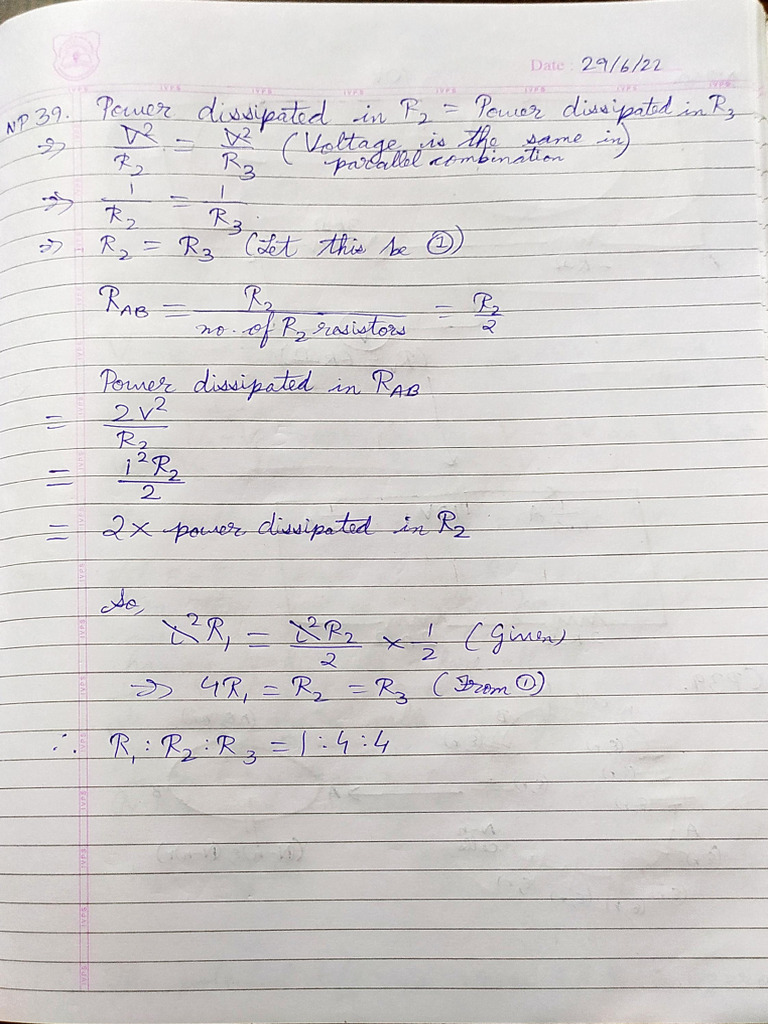 Date : 29/6/22
NP 39. Power dissipated in R₂ = Power dissipated in R₃
⇒ V²/R₂ = V²/R₃ (Voltage is the same in parallel combination)
⇒ 1/R₂ = 1/R₃
⇒ R₂ = R₃ (Let this be ①)
R_AB = R₂/no. of R₂ resistors = R₂/2
Power dissipated in R_AB
= 2V²/R₂
= i²R₂/2
= 2 x power dissipated in R₂
So,
i²R₁ = i²R₂/2 x 1/2 (Given)
⇒ 4R₁ = R₂ = R₃ (From ①)
∴ R₁ : R₂ : R₃ = 1 : 4 : 4